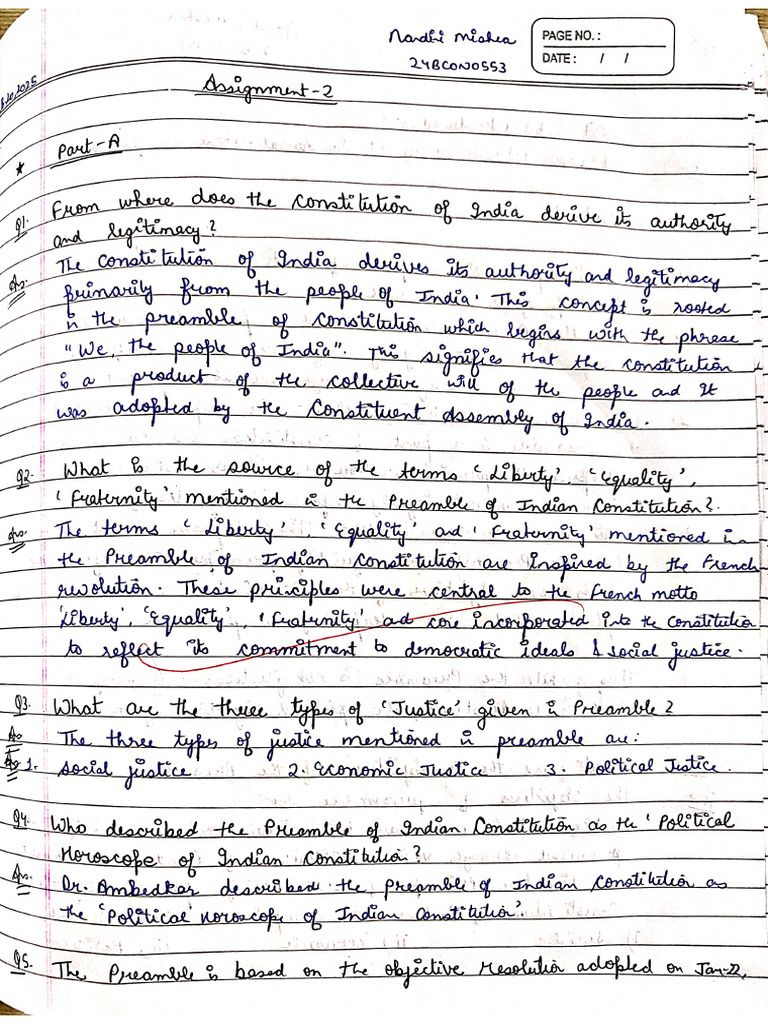 Nandni Mishra
PAGE NO. :
24BCON0553
DATE : / /
2025
Assignment-2
* Part-A
Q1. From where does the Constitution of India derive its authority
and legitimacy?
Ans. The Constitution of India derives its authority and legitimacy
primarily from the people of India. This concept is rooted
in the preamble of constitution which begins with the phrase
"We, the people of India". This signifies that the constitution
is a product of the collective will of the people and It
was adopted by the Constituent Assembly of India.
Q2. What is the source of the terms 'Liberty', 'Equality',
'Fraternity' mentioned in the Preamble of Indian Constitution?
Ans. The terms 'Liberty', 'Equality' and 'Fraternity' mentioned in
the Preamble of Indian Constitution are inspired by the French
revolution. These principles were central to the French motto
'Liberty', 'Equality', 'Fraternity' and core incorporated into the Constitution
to reflect its commitment to democratic ideals & social justice.
Q3. What are the three types of 'Justice' given in Preamble?
Ans The three types of justice mentioned in preamble are:
1. Social justice 2. Economic Justice 3. Political Justice.
Q4. Who described the Preamble of Indian Constitution as the 'Political
Horoscope of Indian Constitution?
Ans. Dr. Ambedkar described the preamble of Indian Constitution as
the 'Political' horoscope of Indian Constitution'.
Q5. The Preamble is based on the objective resolution adopted on Jan-22,